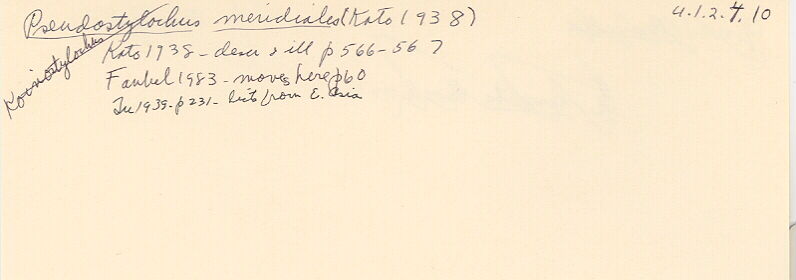 Pseudostylochus meridiales (Kato 1938) 4.1.2.7.10
Koinostylochus
Kato 1938 - descr & ill p 566-567
Faubel 1983 - moves here p60
1939 - p 231 - lists from E. Asia